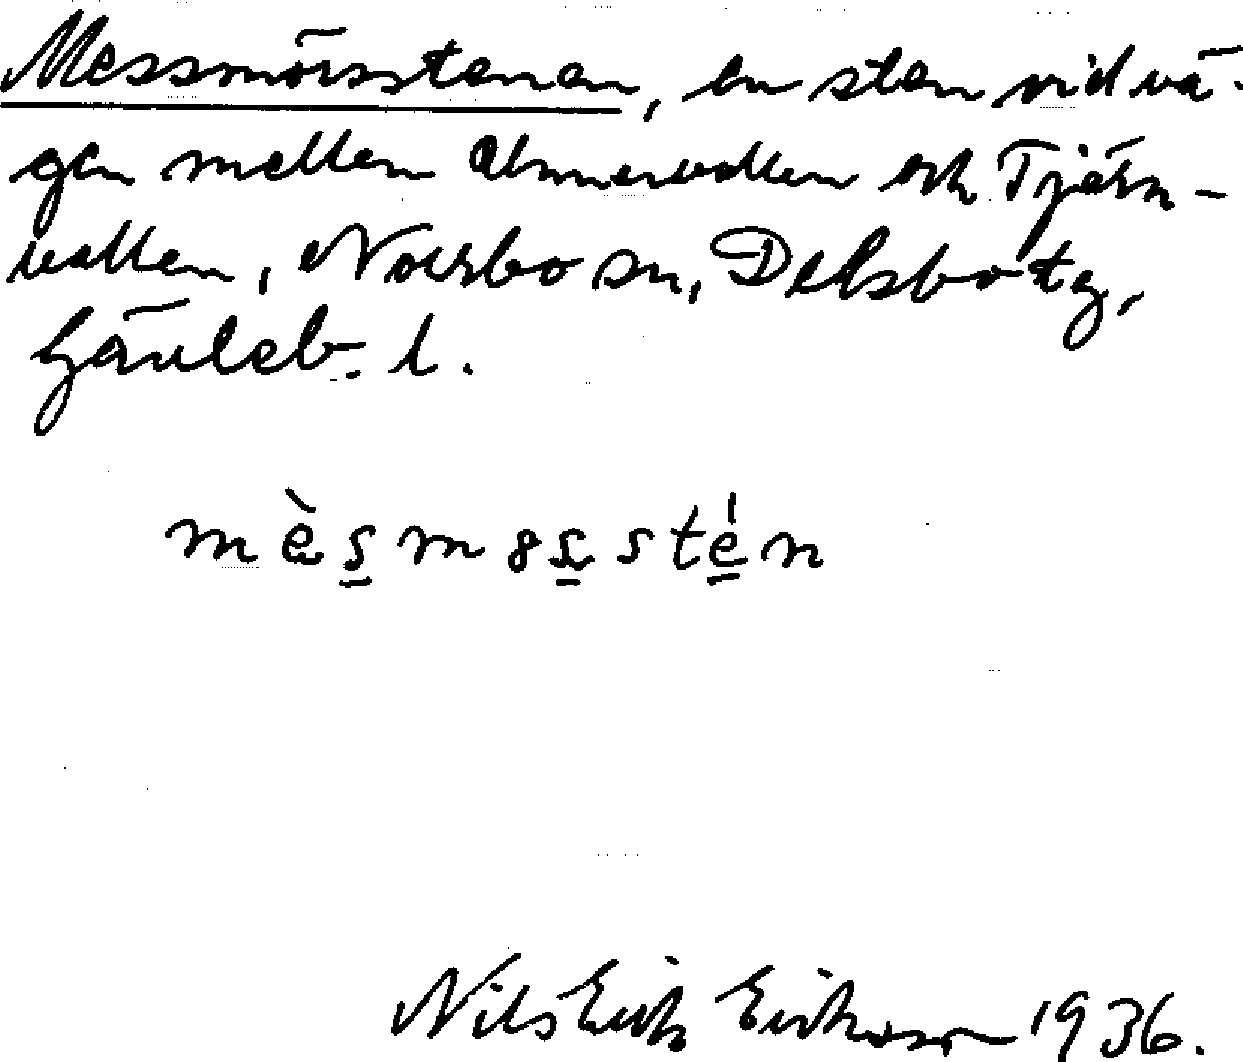 Messmörsstenen, en sten vid vä-
gen mellan Ahnevallen och Tjärn-
vallen, Norrbo sn, Delsbo tg,
Gävleb. l.
mèsmɞsstén
Nils Erik Eriksson 1936.